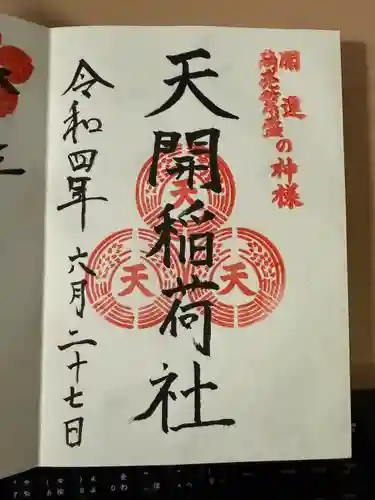 開運
商売繁盛の神様
天開稲荷社
天
天
天
令和四年六月二十七日
三